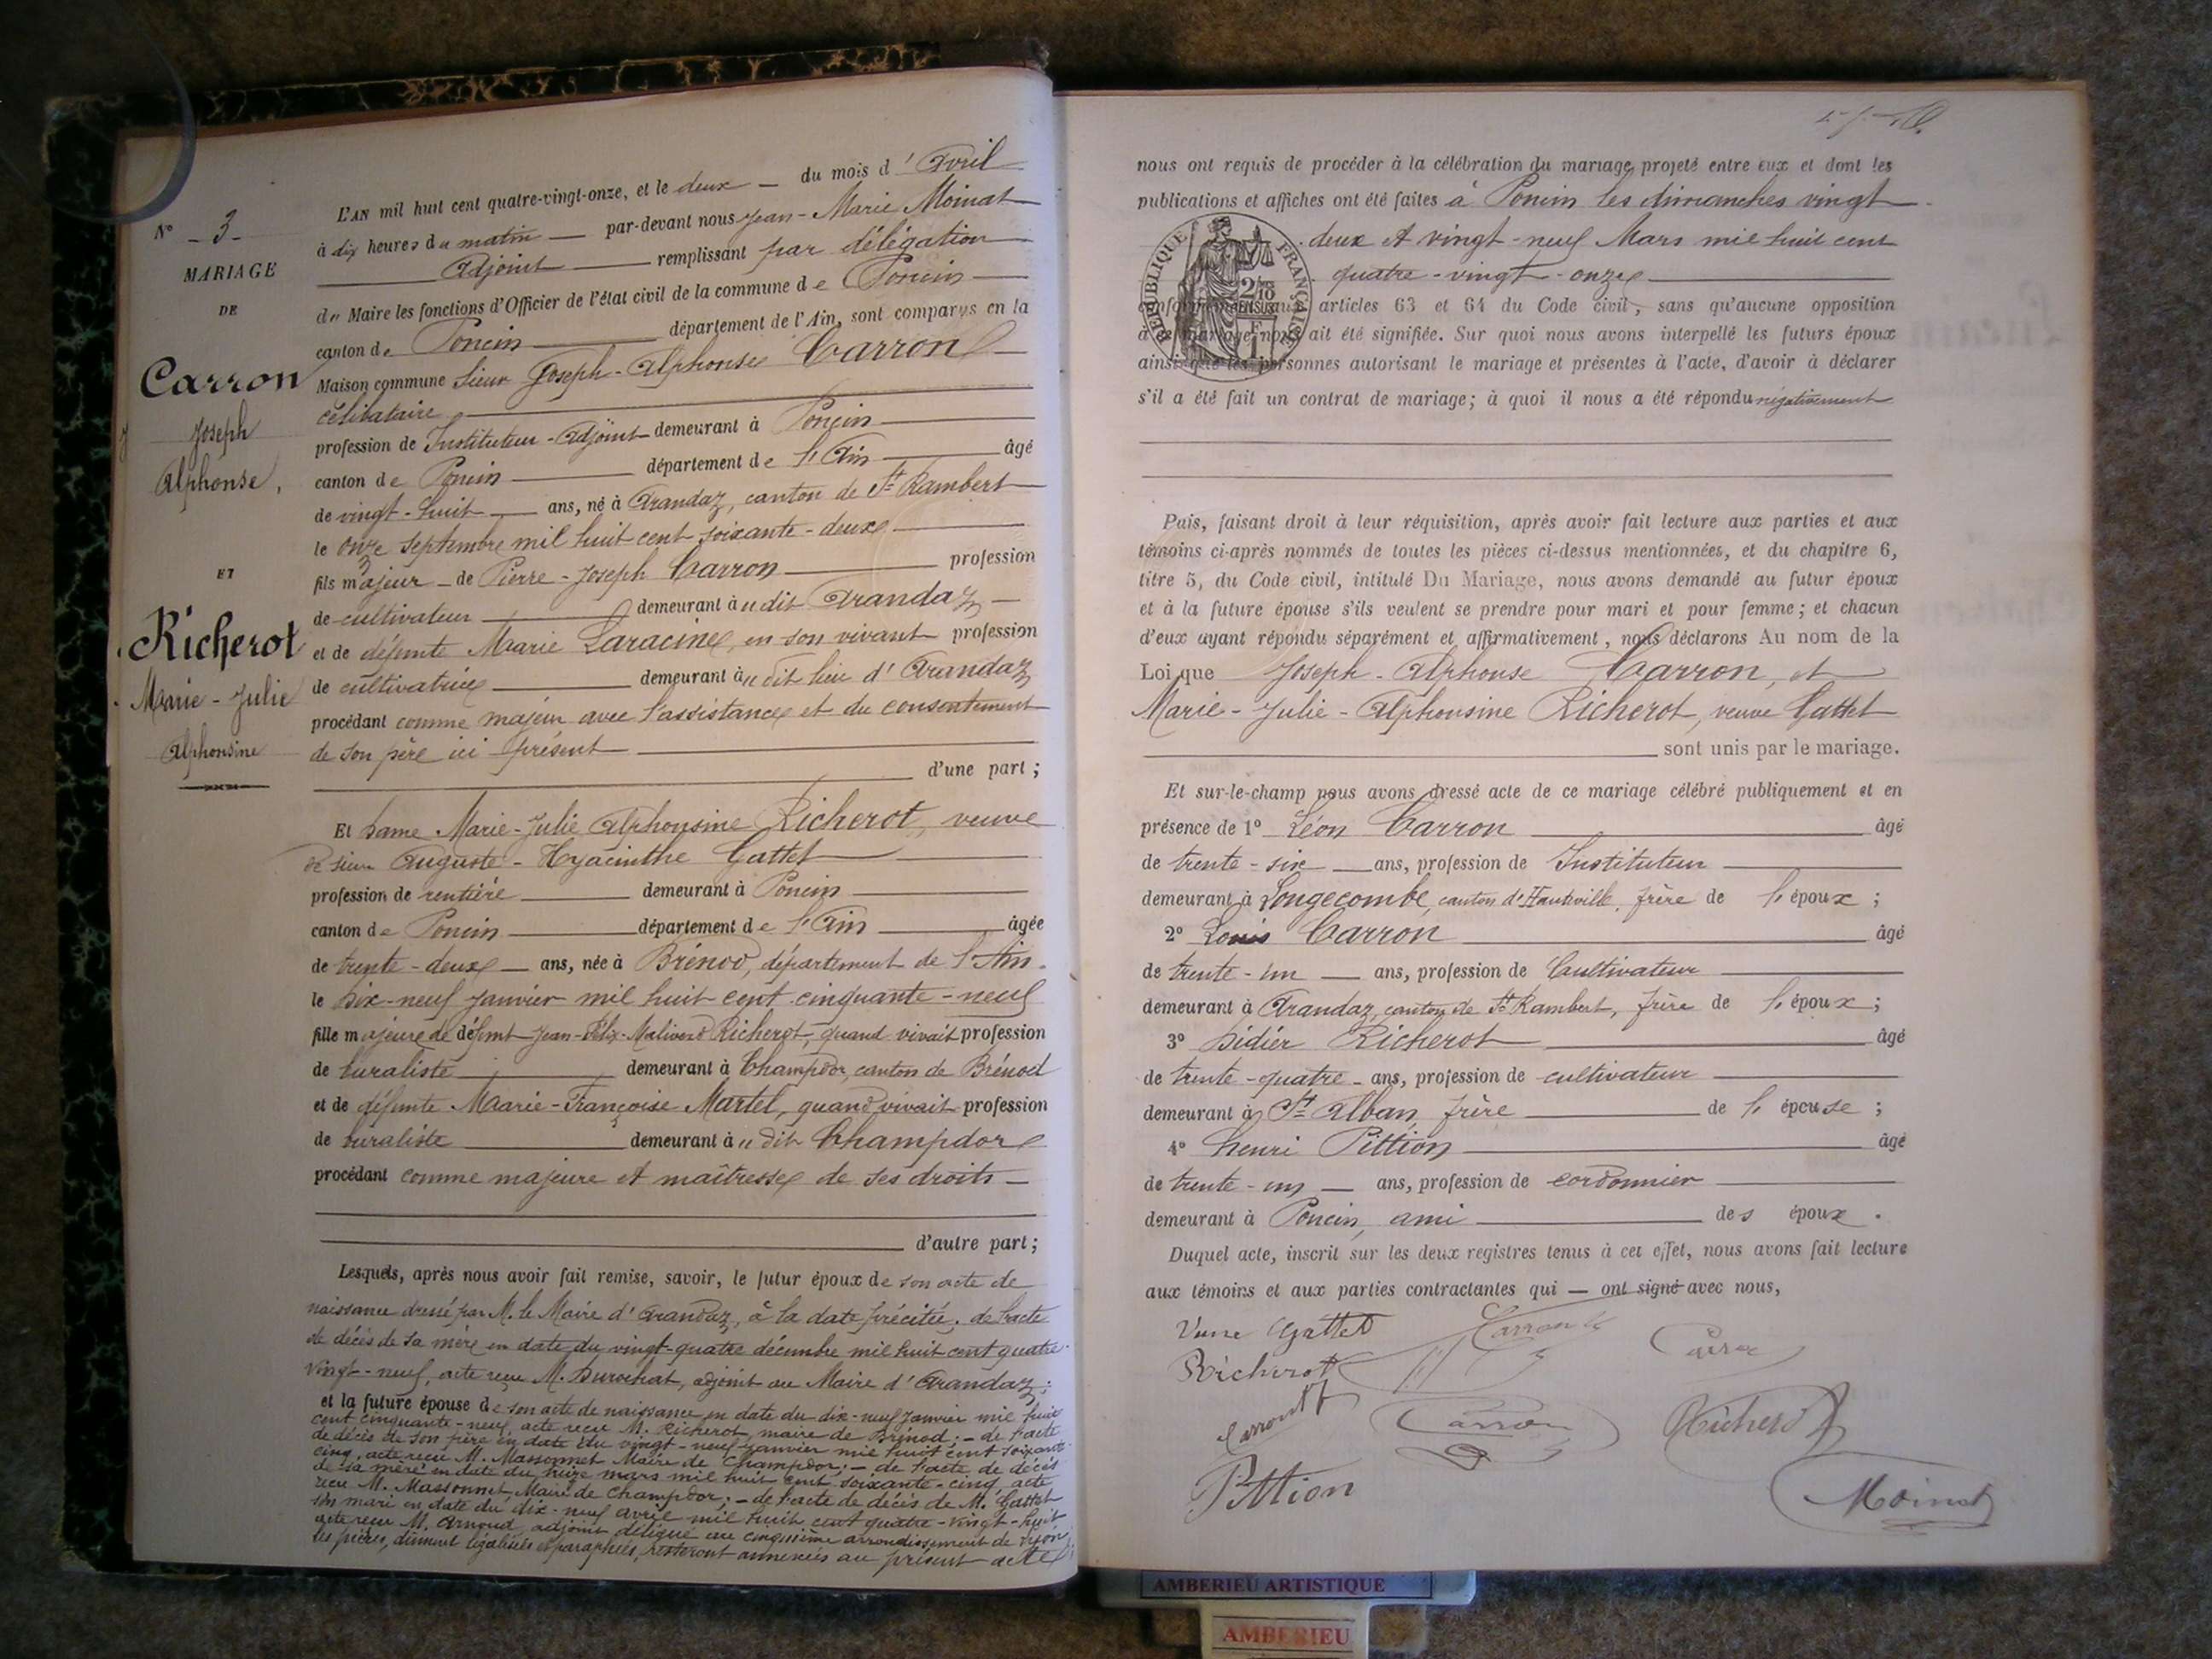 N° 3
MARIAGE
DE
Carron
Joseph
Alphonse,
ET
Richerot
Marie-Julie
Alphonsine
L'AN mil huit cent quatre-vingt-onze, et le deux du mois d'Avril
à dix heures du matin par-devant nous Jean-Marie Moinat
Adjoint remplissant par délégation
du Maire les fonctions d'Officier de l'état civil de la commune de Poncin
canton de Poncin département de l'Ain, sont comparus en la
Maison commune Sieur Joseph-Alphonse Carron
célibataire
profession de Instituteur-Adjoint demeurant à Poncin
canton de Poncin département de l'Ain âgé
de vingt-huit ans, né à Arandaz, canton de St Rambert
le onze septembre mil huit cent soixante-deux
fils majeur de Pierre-Joseph Carron profession
de cultivateur demeurant audit Arandaz
et de défunte Marie Laracine, en son vivant profession
de cultivatrice demeurant au dit lieu d'Arandaz
procédant comme majeur avec l'assistance et du consentement
de son père ici présent
d'une part ;
Et Dame Marie-Julie Alphonsine Richerot, veuve
de sieur Auguste-Hyacinthe Gattet
profession de rentière demeurant à Poncin
canton de Poncin département de l'Ain âgée
de trente-deux ans, née à Brénod, département de l'Ain
le dix-neuf Janvier mil huit cent cinquante-neuf
fille majeure de défunt Jean-Félix- Richerot, quand vivait profession
de buraliste demeurant à Champdor, canton de Brénod
et de défunte Marie-Françoise Martel, quand vivait profession
de buraliste demeurant au dit Champdor
procédant comme majeure et maîtresse de ses droits
d'autre part ;
Lesquels, après nous avoir fait remise, savoir, le futur époux de son acte de
naissance dressé par M. le Maire d'Arandaz, à la date précitée ; de l'acte
de décès de sa mère en date du vingt-quatre décembre mil huit cent quatre-
vingt-neuf, acte reçu M. Durochat, adjoint au Maire d'Arandaz ;
et la future épouse de son acte de naissance en date du dix-neuf Janvier mil huit
cent cinquante-neuf, acte reçu M. Richerot, maire de Brénod ; - de l'acte
de décès de son père en date du vingt-neuf Janvier mil huit cent soixante-
cinq, acte reçu M. Massonnet Maire de Champdor ; - de l'acte de décès
de sa mère en date du mars mil huit cent soixante-cinq, acte
reçu M. Massonnet Maire de Champdor ; - de l'acte de décès de M. Gattet
son mari en date du dix-neuf avril mil huit cent quatre-vingt-huit
acte reçu M. Arnoud, adjoint délégué au cinquième arrondissement de Lyon ;
les pièces, dûment légalisées et paraphées, resteront annexées au présent acte ;
nous ont requis de procéder à la célébration du mariage projeté entre eux et dont les
publications et affiches ont été faites à Poncin les dimanches vingt
deux et vingt-neuf Mars mil huit cent
quatre-vingt-onze
RÉPUBLIQUE FRANÇAISE
conformément aux articles 63 et 64 du Code civil, sans qu'aucune opposition
à ce mariage nous ait été signifiée. Sur quoi nous avons interpellé les futurs époux
ainsi que les personnes autorisant le mariage et présentes à l'acte, d'avoir à déclarer
s'il a été fait un contrat de mariage; à quoi il nous a été répondu négativement
Puis, faisant droit à leur réquisition, après avoir fait lecture aux parties et aux
témoins ci-après nommés de toutes les pièces ci-dessus mentionnées, et du chapitre 6,
titre 5, du Code civil, intitulé Du Mariage, nous avons demandé au futur époux
et à la future épouse s'ils veulent se prendre pour mari et pour femme ; et chacun
d'eux ayant répondu séparément et affirmativement, nous déclarons Au nom de la
Loi que Joseph-Alphonse Carron, et
Marie-Julie-Alphonsine Richerot, veuve Gattet
sont unis par le mariage.
Et sur-le-champ nous avons dressé acte de ce mariage célébré publiquement et en
présence de 1° Léon Carron âgé
de trente-six ans, profession de Instituteur
demeurant à Longecombe, canton d'Hauteville, frère de l'époux ;
2° Louis Carron âgé
de trente-un ans, profession de Cultivateur
demeurant à Arandaz, canton de St Rambert, frère de l'époux ;
3° Didier Richerot âgé
de trente-quatre ans, profession de cultivateur
demeurant à St Alban, frère de l'épouse ;
4° Henri Pittion âgé
de trente-un ans, profession de cordonnier
demeurant à Poncin, ami des époux.
Duquel acte, inscrit sur les deux registres tenus à cet effet, nous avons fait lecture
aux témoins et aux parties contractantes qui ont signé avec nous,
Veuve Gattet
Carron
Richerot
Carron
Richerot
Pittion
Moinat
AMBERIEU ARTISTIQUE
AMBERIEU